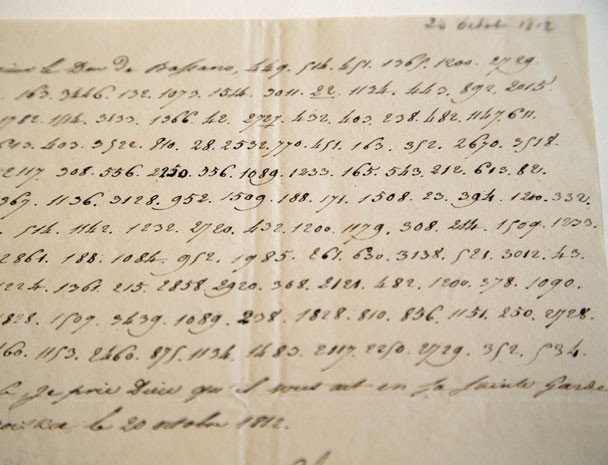 20 Octob 1812
le Duc de Bassano, 449. 514. 451. 1365. 1200. 2729.
163. 3446. 132. 1073. 1544. 3011. 22. 1134. 443. 892. 2015.
1782. 3133. 1366. 42. 2727. 432. 403. 238. 482. 1147. 611.
613. 403. 3522. 810. 28. 2532. 770. 451. 163. 352. 2670. 3518.
2117. 308. 556. 2250. 356. 1089. 1233. 165. 543. 212. 613. 82.
1136. 3128. 952. 1509. 188. 171. 1508. 23. 394. 1200. 332.
514. 1142. 1232. 2720. 432. 1200. 1179. 308. 214. 1509. 1233.
2861. 188. 1084. 952. 1985. 261. 630. 3138. 521. 3012. 43.
1224. 1361. 215. 2858. 2920. 368. 2121. 482. 1200. 378. 1090.
1828. 1507. 3439. 1089. 238. 1828. 810. 836. 1151. 250. 2728.
1153. 2460. 875. 1134. 1483. 2117. 2250. 2729. 352. 534.
Je prie Dieu qu'il vous ait en Sa Sainte Garde
le 20 octobre 1812.